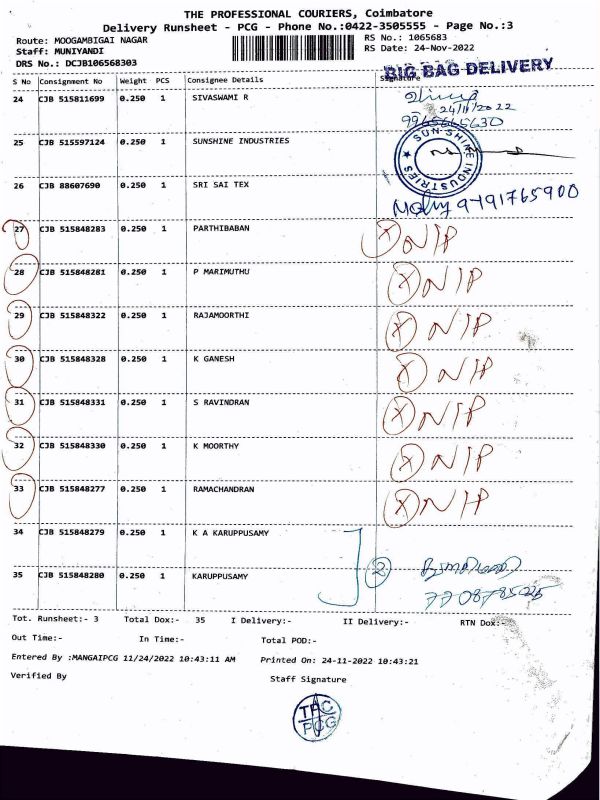 THE PROFESSIONAL COURIERS, Coimbatore
Delivery Runsheet - PCG - Phone No.:0422-3505555 - Page No.:3
Route: MOOGAMBIGAI NAGAR RS No.: 1065683
Staff: MUNIYANDI RS Date: 24-Nov-2022
DRS No.: DCJB106568303
BIG BAG DELIVERY
S No Consignment No Weight PCS Consignee Details Signature
24 CJB 515811699 0.250 1 SIVASWAMI R
24/11/2022
25 CJB 515597124 0.250 1 SUNSHINE INDUSTRIES
SUN-SHINE INDUSTRIES
26 CJB 88607690 0.250 1 SRI SAI TEX
9791765900
27 CJB 515848283 0.250 1 PARTHIBABAN X NIP
28 CJB 515848281 0.250 1 P MARIMUTHU X NIP
29 CJB 515848322 0.250 1 RAJAMOORTHI X NIP
30 CJB 515848328 0.250 1 K GANESH X NIP
31 CJB 515848331 0.250 1 S RAVINDRAN X NIP
32 CJB 515848330 0.250 1 K MOORTHY X NIP
33 CJB 515848277 0.250 1 RAMACHANDRAN X NIP
34 CJB 515848279 0.250 1 K A KARUPPUSAMY
2
35 CJB 515848280 0.250 1 KARUPPUSAMY
Tot. Runsheet:- 3 Total Dox:- 35 I Delivery:- II Delivery:- RTN Dox:-
Out Time:- In Time:- Total POD:-
Entered By :MANGAIPCG 11/24/2022 10:43:11 AM Printed On: 24-11-2022 10:43:21
Verified By Staff Signature
TPC
PCG